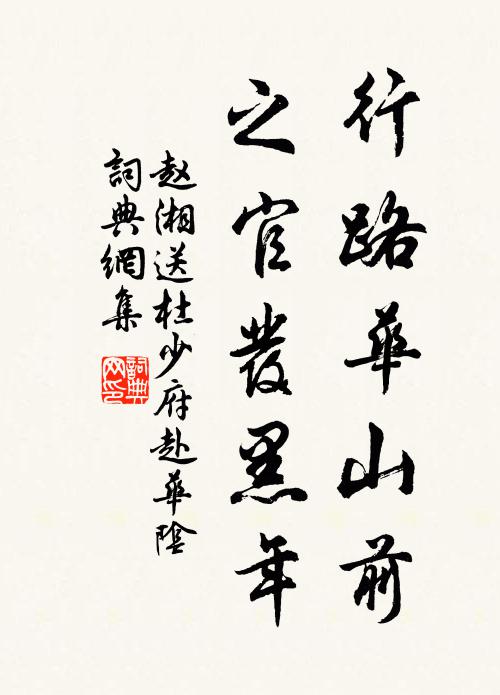 行路華山前
之官發黑年
赵湘送杜少府赴華陰
詞典網集
詞典網印